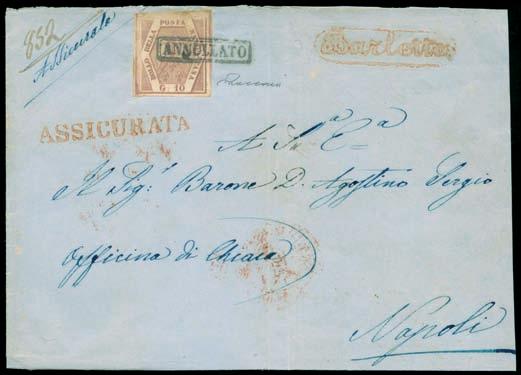 852
Assicurata
BOLLO DELLA POSTA NAPOLETANA
G. 10
ANNULLATO
Barletta
ASSICURATA
A Sua Ecc.a
Il Sig.r Barone D. Agostino Sergio
Officina di Chiaia
Napoli